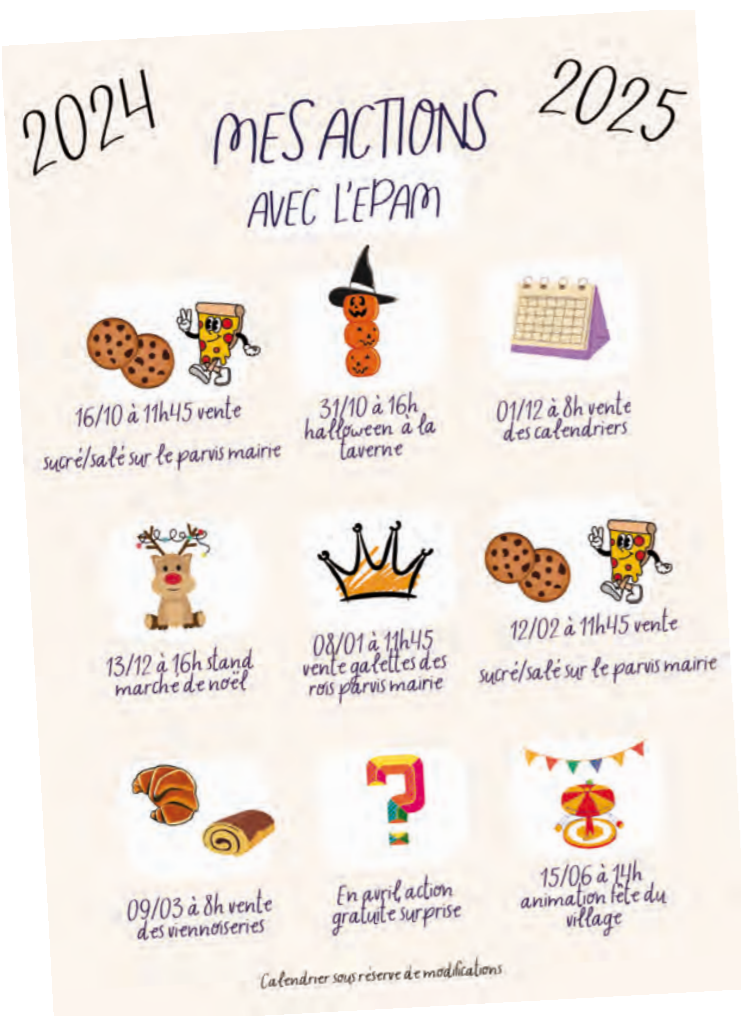 2024
2025
MES ACTIONS
AVEC L'EPAM
16/10 à 11h45 vente
sucré/salé sur le parvis mairie
31/10 à 16h
halloween à la
taverne
01/12 à 8h vente
des calendriers
13/12 à 16h stand
marche de noël
08/01 à 11h45
vente galettes des
rois parvis mairie
12/02 à 11h45 vente
sucré/salé sur le parvis mairie
09/03 à 8h vente
des viennoiseries
En avril, action
gratuite surprise
15/06 à 14h
animation fête du
village
Calendrier sous réserve de modifications